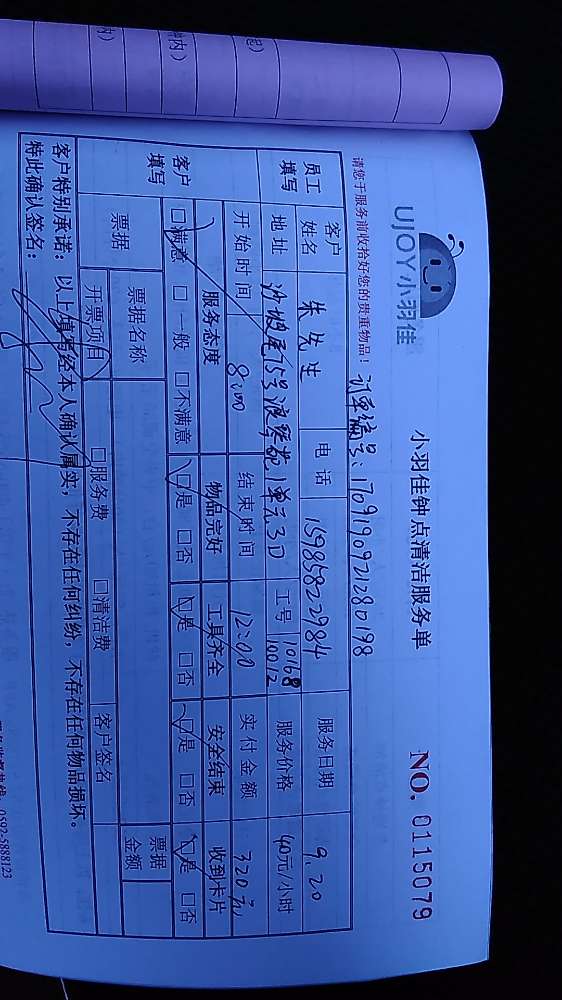 UJOY小羽佳
小羽佳钟点清洁服务单
NO. 0115079
请您于服务前收拾好您的贵重物品!
订单编号: 1709190921280198
员工填写
客户姓名 朱先生 电话 15985822984 服务日期 9.20
地址 沙坡尾75号渡琴苑1单元3D 工号 10168 10012 服务价格 40元/小时
开始时间 8:00 结束时间 12:00 实付金额 320元
客户填写
服务态度 物品完好 工具齐全 安全结束 收到卡片
□满意 □一般 □不满意 □是 □否 □是 □否 □是 □否 □是 □否
票据 票据名称 票据金额
开票项目 □服务费 □清洁费 客户签名
客户特别承诺:以上填写经本人确认属实,不存在任何纠纷,不存在任何物品损坏。
特此确认签名:
服务监督热线: 0592-5888123